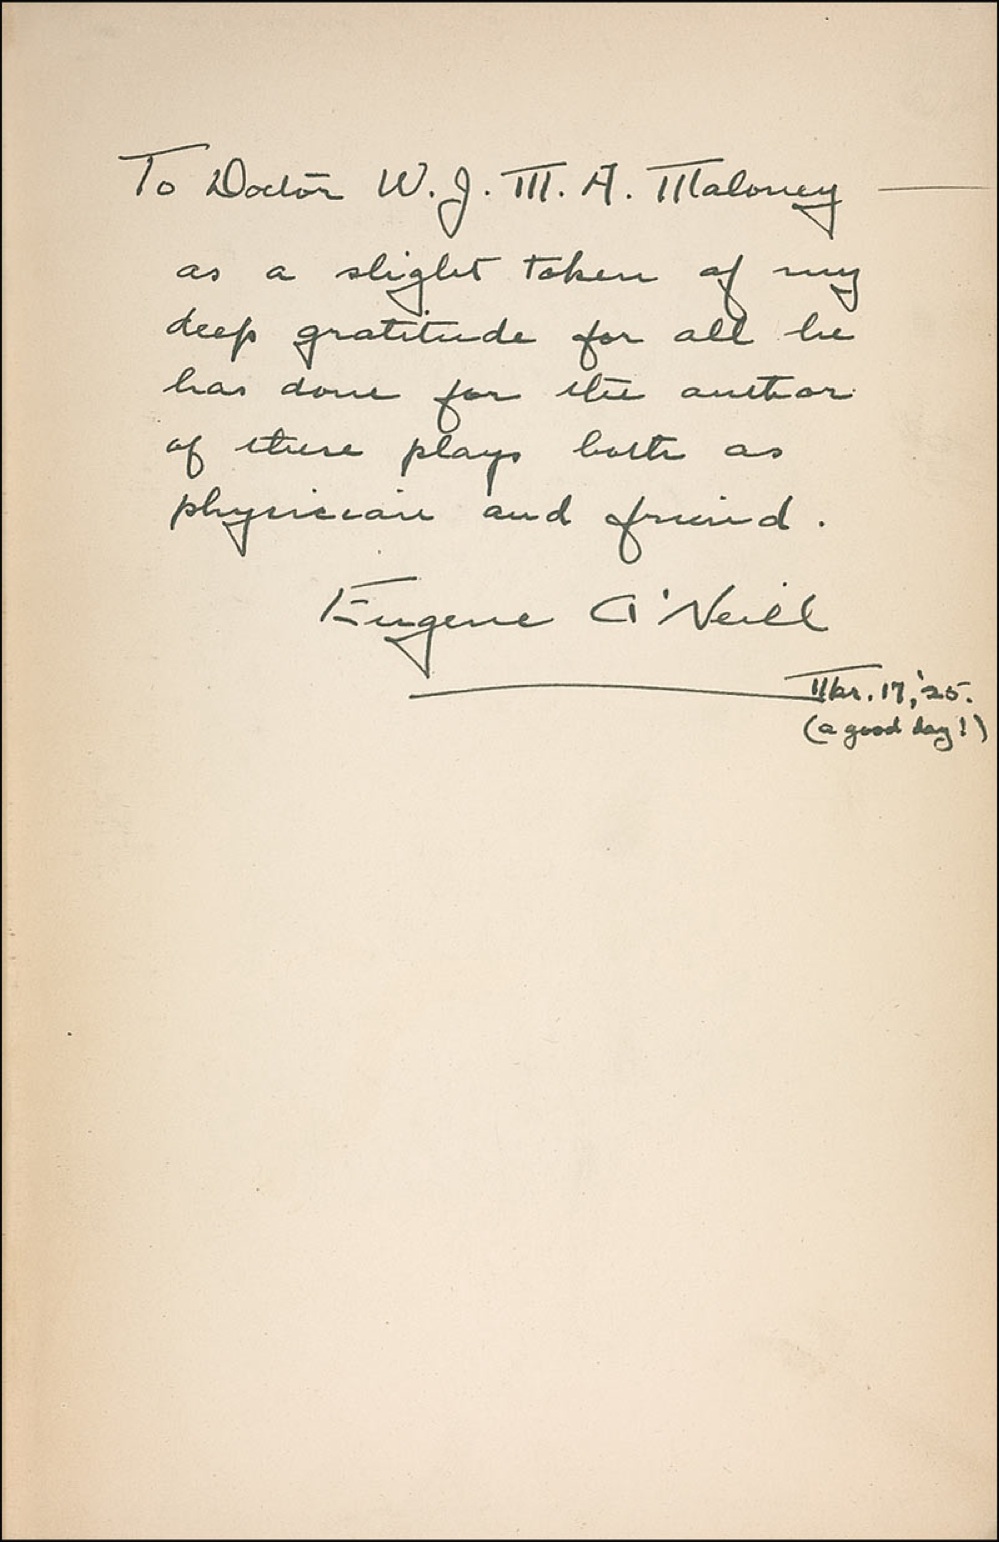 To Doctor W. J. M. A. Maloney —
as a slight token of my
deep gratitude for all he
has done for the author
of these plays both as
physician and friend.
Eugene O'Neill
Mar. 17, '25.
(a good day!)